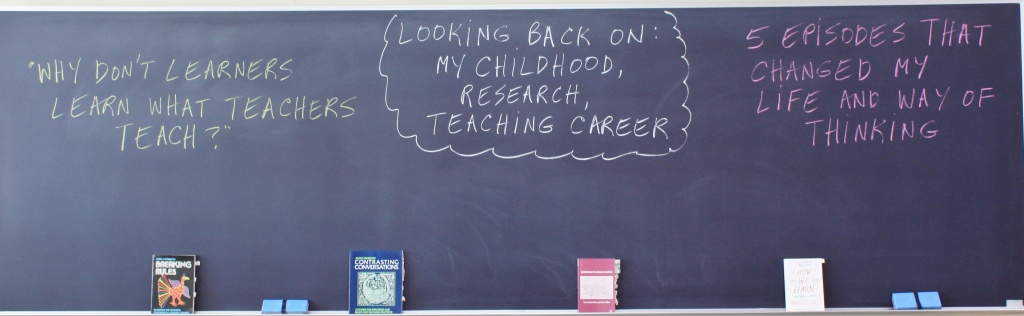 "WHY DON'T LEARNERS
LEARN WHAT TEACHERS
TEACH?"
LOOKING BACK ON:
MY CHILDHOOD,
RESEARCH,
TEACHING CAREER
5 EPISODES THAT
CHANGED MY
LIFE AND WAY OF
THINKING
BREAKING
RULES
CONTRASTING
CONVERSATIONS